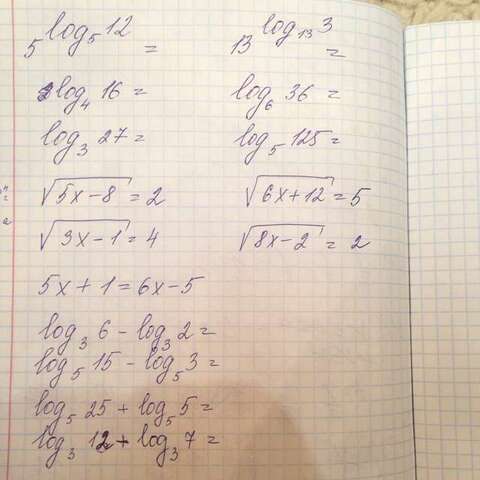 5^{log₅ 12} = 13^{log₁₃ 3} =
log₄ 16 = log₆ 36 =
log₃ 27 = log₅ 125 =
√(5x-8) = 2 √(6x+12) = 5
√(3x-1) = 4 √(8x-2) = 2
5x+1=6x-5
log₃ 6 - log₃ 2 =
log₅ 15 - log₅ 3 =
log₅ 25 + log₅ 5 =
log₃ 12 + log₃ 7 =